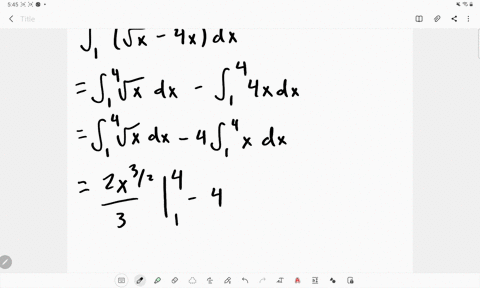 5:45
Title
∫₁ (√x − 4x) dx
= ∫₁⁴ √x dx − ∫₁⁴ 4x dx
= ∫₁⁴ √x dx − 4∫₁⁴ x dx
= 2x^(3/2)/3 |₁⁴ − 4